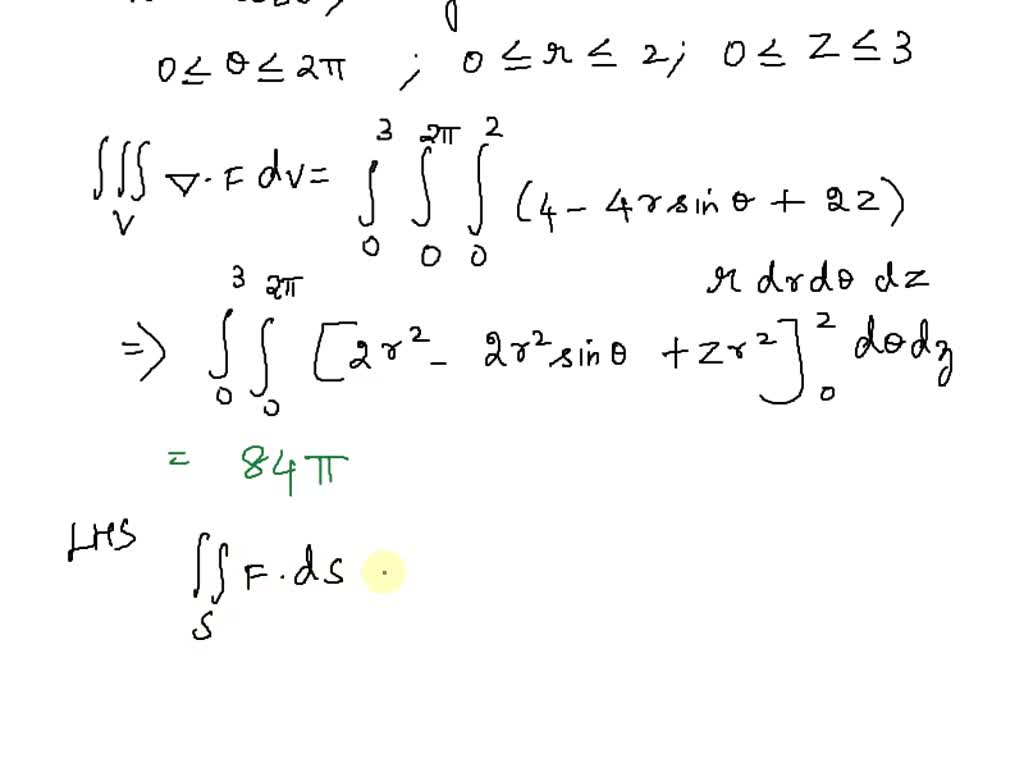 0 ≤ θ ≤ 2π ; 0 ≤ r ≤ 2; 0 ≤ Z ≤ 3
∭_V ∇·F dV = ∫_0^3 ∫_0^{2π} ∫_0^2 (4 - 4r sin θ + 2z)
r dr dθ dz
⇒ ∫_0^3 ∫_0^{2π} [2r² - 2r² sin θ + zr²]_0^2 dθ dz
= 84π
LHS
∬_S F·ds